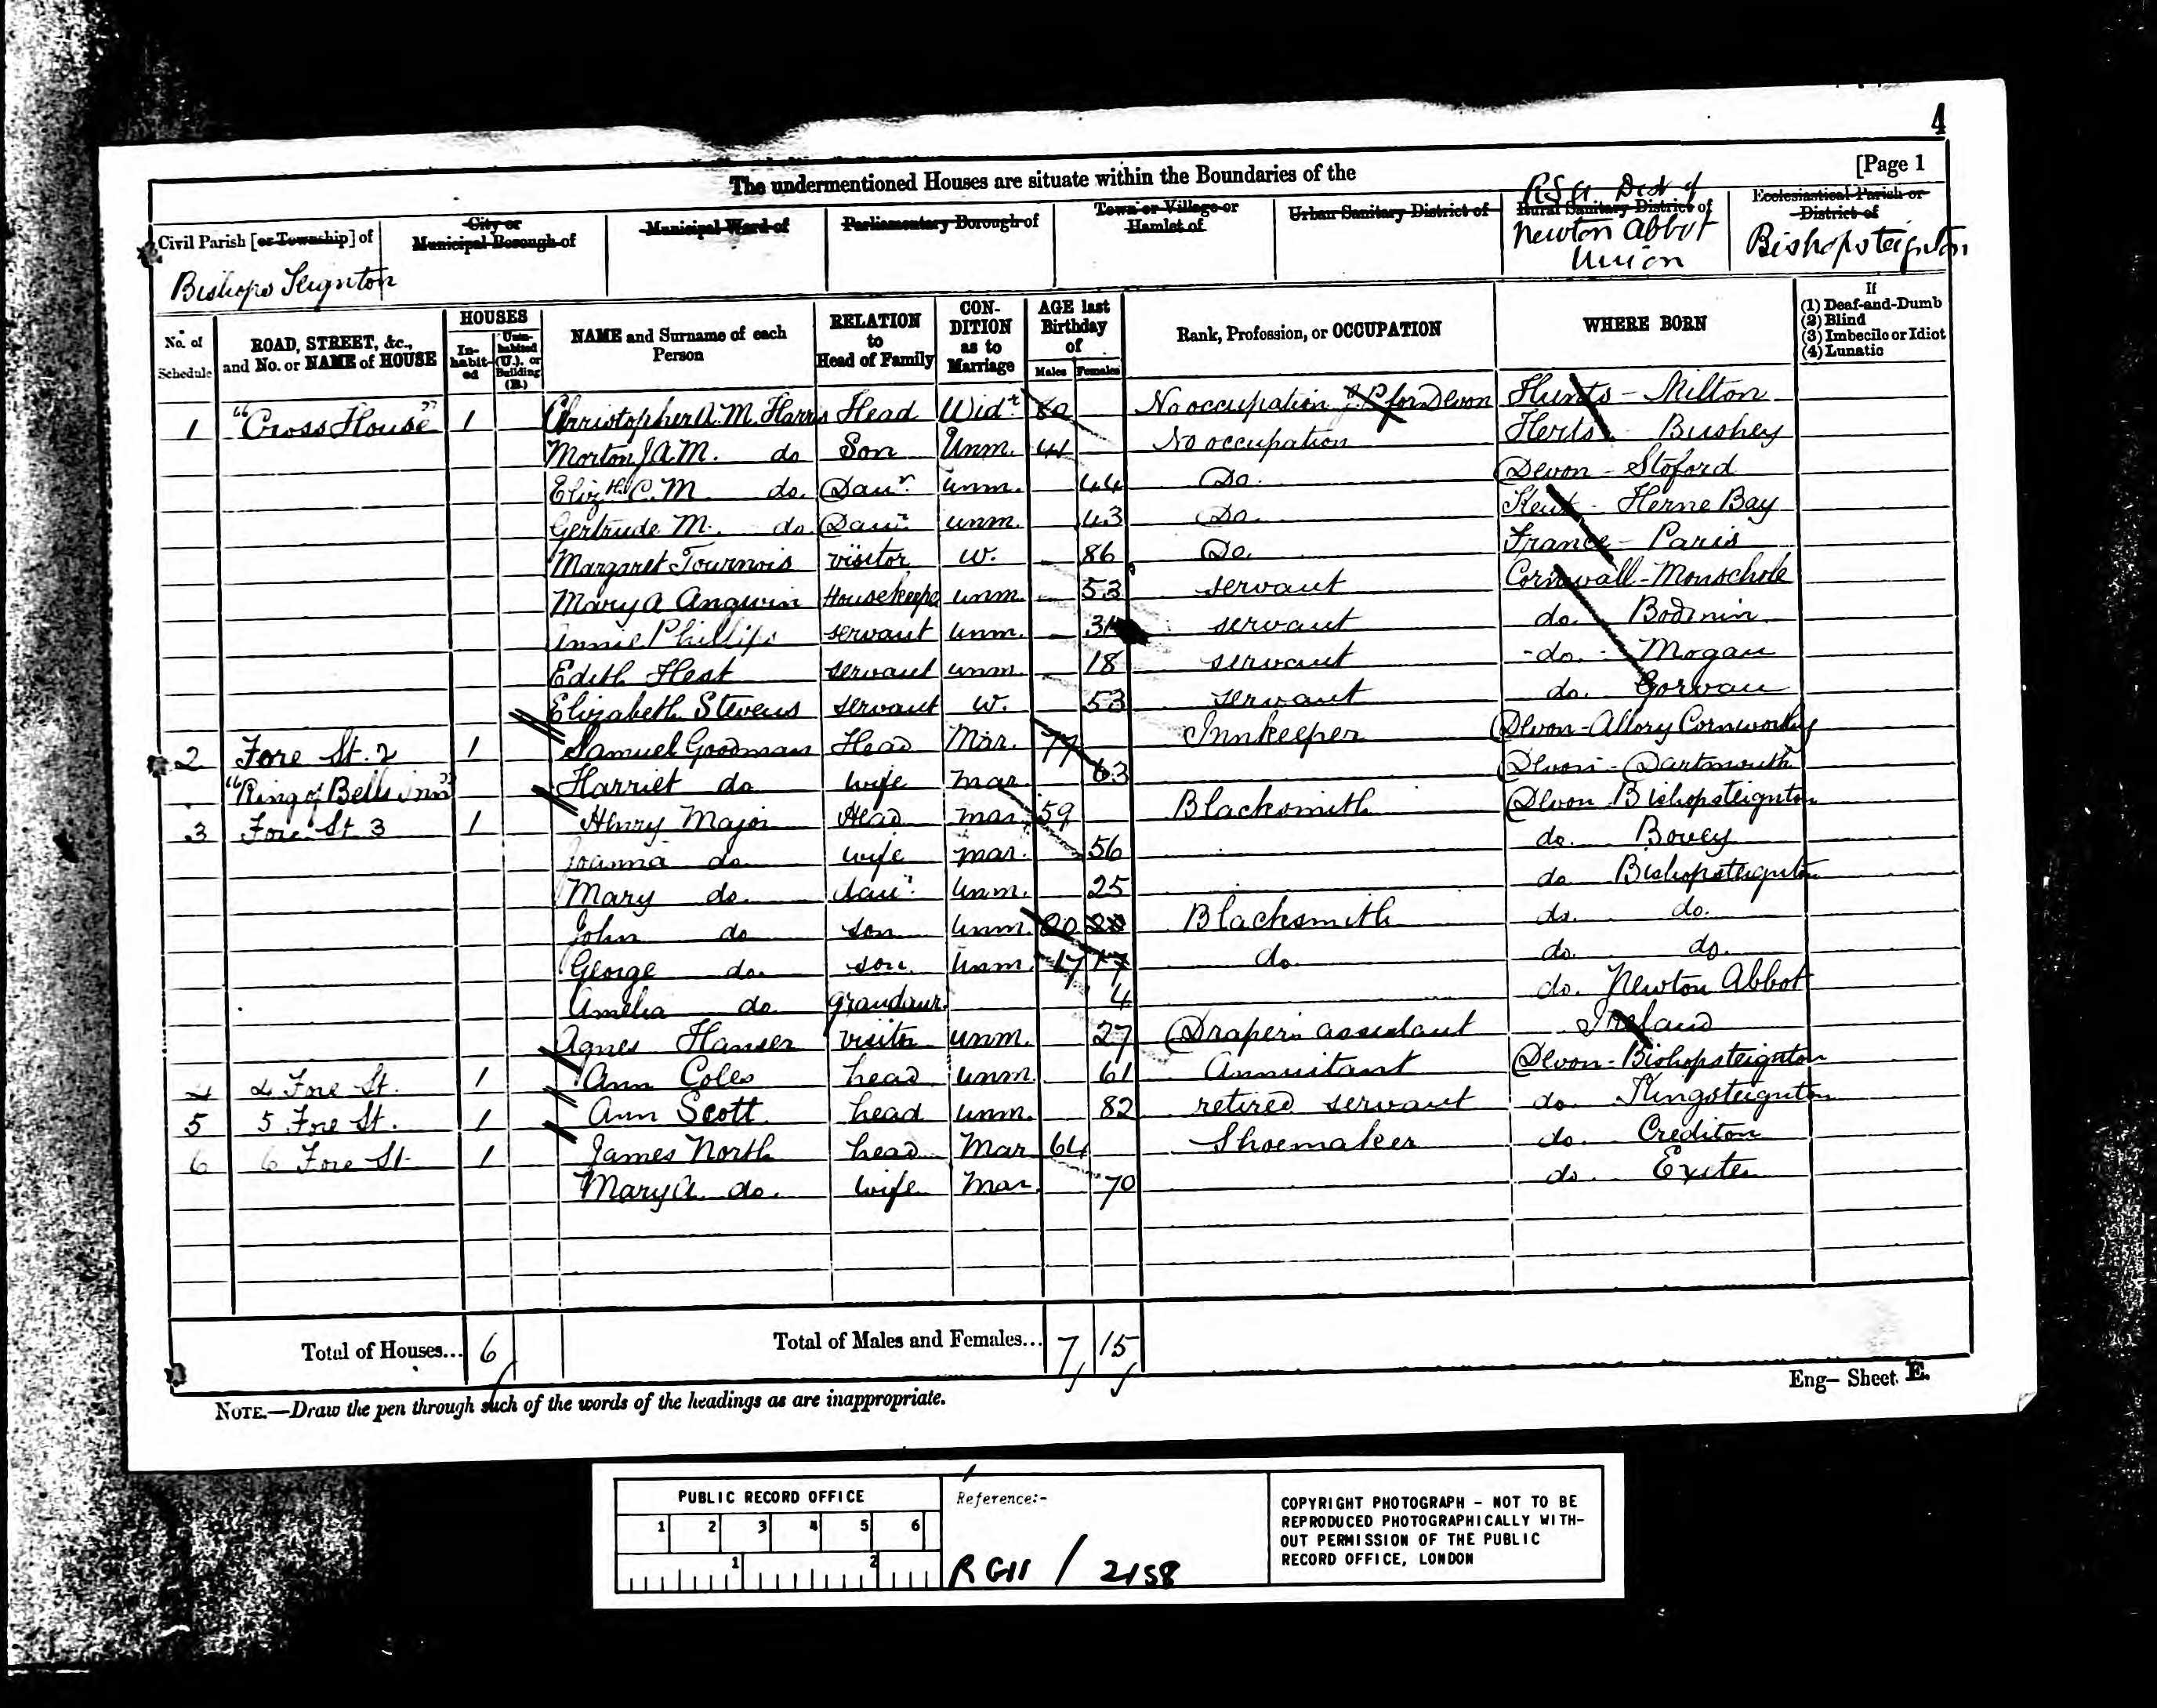 4
[Page 1
The undermentioned Houses are situate within the Boundaries of the
Civil Parish [or Township] of
City or Municipal Borough of
Municipal Ward of
Parliamentary Borough of
Town or Village or Hamlet of
Urban Sanitary District of
Rural Sanitary District of
Ecclesiastical Parish or District of
Bishops Teignton
Newton Abbot Union
Bishopsteignton
No. of Schedule
ROAD, STREET, &c., and No. or NAME of HOUSE
HOUSES
In-habit-ed
Unin-habited (U.), or Building (B.)
NAME and Surname of each Person
RELATION to Head of Family
CON-DITION as to Marriage
AGE last Birthday of
Males
Females
Rank, Profession, or OCCUPATION
WHERE BORN
If
(1) Deaf-and-Dumb
(2) Blind
(3) Imbecile or Idiot
(4) Lunatic
1 "Cross House" 1 Christopher A. M. Harris Head Widr 80 No occupation J.P. for Devon Hunts - Milton
Morton J A M. do Son Unm. 41 No occupation Herts Bushey
Elizth C. M do. Daur. unm. 44 Do. Devon - Stoford
Gertrude M. do Daur unm. 43 Do. Kent - Herne Bay
Margaret Tournois visitor w. 86 Do. France - Paris
Mary A Angwin Housekeeper unm. 53 servant Cornwall - Monschole
Annie Phillips servant unm. servant do. Bodmin
Edith Heat servant unm. 18 servant do. Mogan
Elizabeth Stevens servant w. 53 servant do. Gorran
2 Fore St. 2 1 Samuel Goodman Head Mar. 77 Innkeeper Devon -
"Ring of Bells inn" Harriet do wife mar. 63 Devon - Dartmouth
3 Fore St 3 1 Henry Major Head mar. 59 Blacksmith Devon Bishopsteignton
Joanna do wife mar. 56 do. Bovey
Mary do. daur. unm. 25 do Bishopsteignton
John do son unm. 20 20 Blacksmith do. do.
George do. son. unm. 17 17 do. do. do.
Amelia do. grandaur. 4 do. Newton Abbot
Agnes Hanser visitor unm. 27 Draper's assistant Ireland
4 4 Fore St. 1 Ann Coles head unm. 61 Annuitant Devon - Bishopsteignton
5 5 Fore St. 1 Ann Scott. head unm. 82 retired servant do. Kingsteignton
6 6 Fore St. 1 James North head Mar 64 Shoemaker do. Crediton
Mary A. do. wife Mar. 70 do. Exeter
Total of Houses... 6
Total of Males and Females... 7 15
NOTE.—Draw the pen through such of the words of the headings as are inappropriate.
Eng— Sheet E.
PUBLIC RECORD OFFICE
1 2 3 4 5 6
1 2
Reference:-
RG11 / 2158
COPYRIGHT PHOTOGRAPH - NOT TO BE
REPRODUCED PHOTOGRAPHICALLY WITH-
OUT PERMISSION OF THE PUBLIC
RECORD OFFICE, LONDON